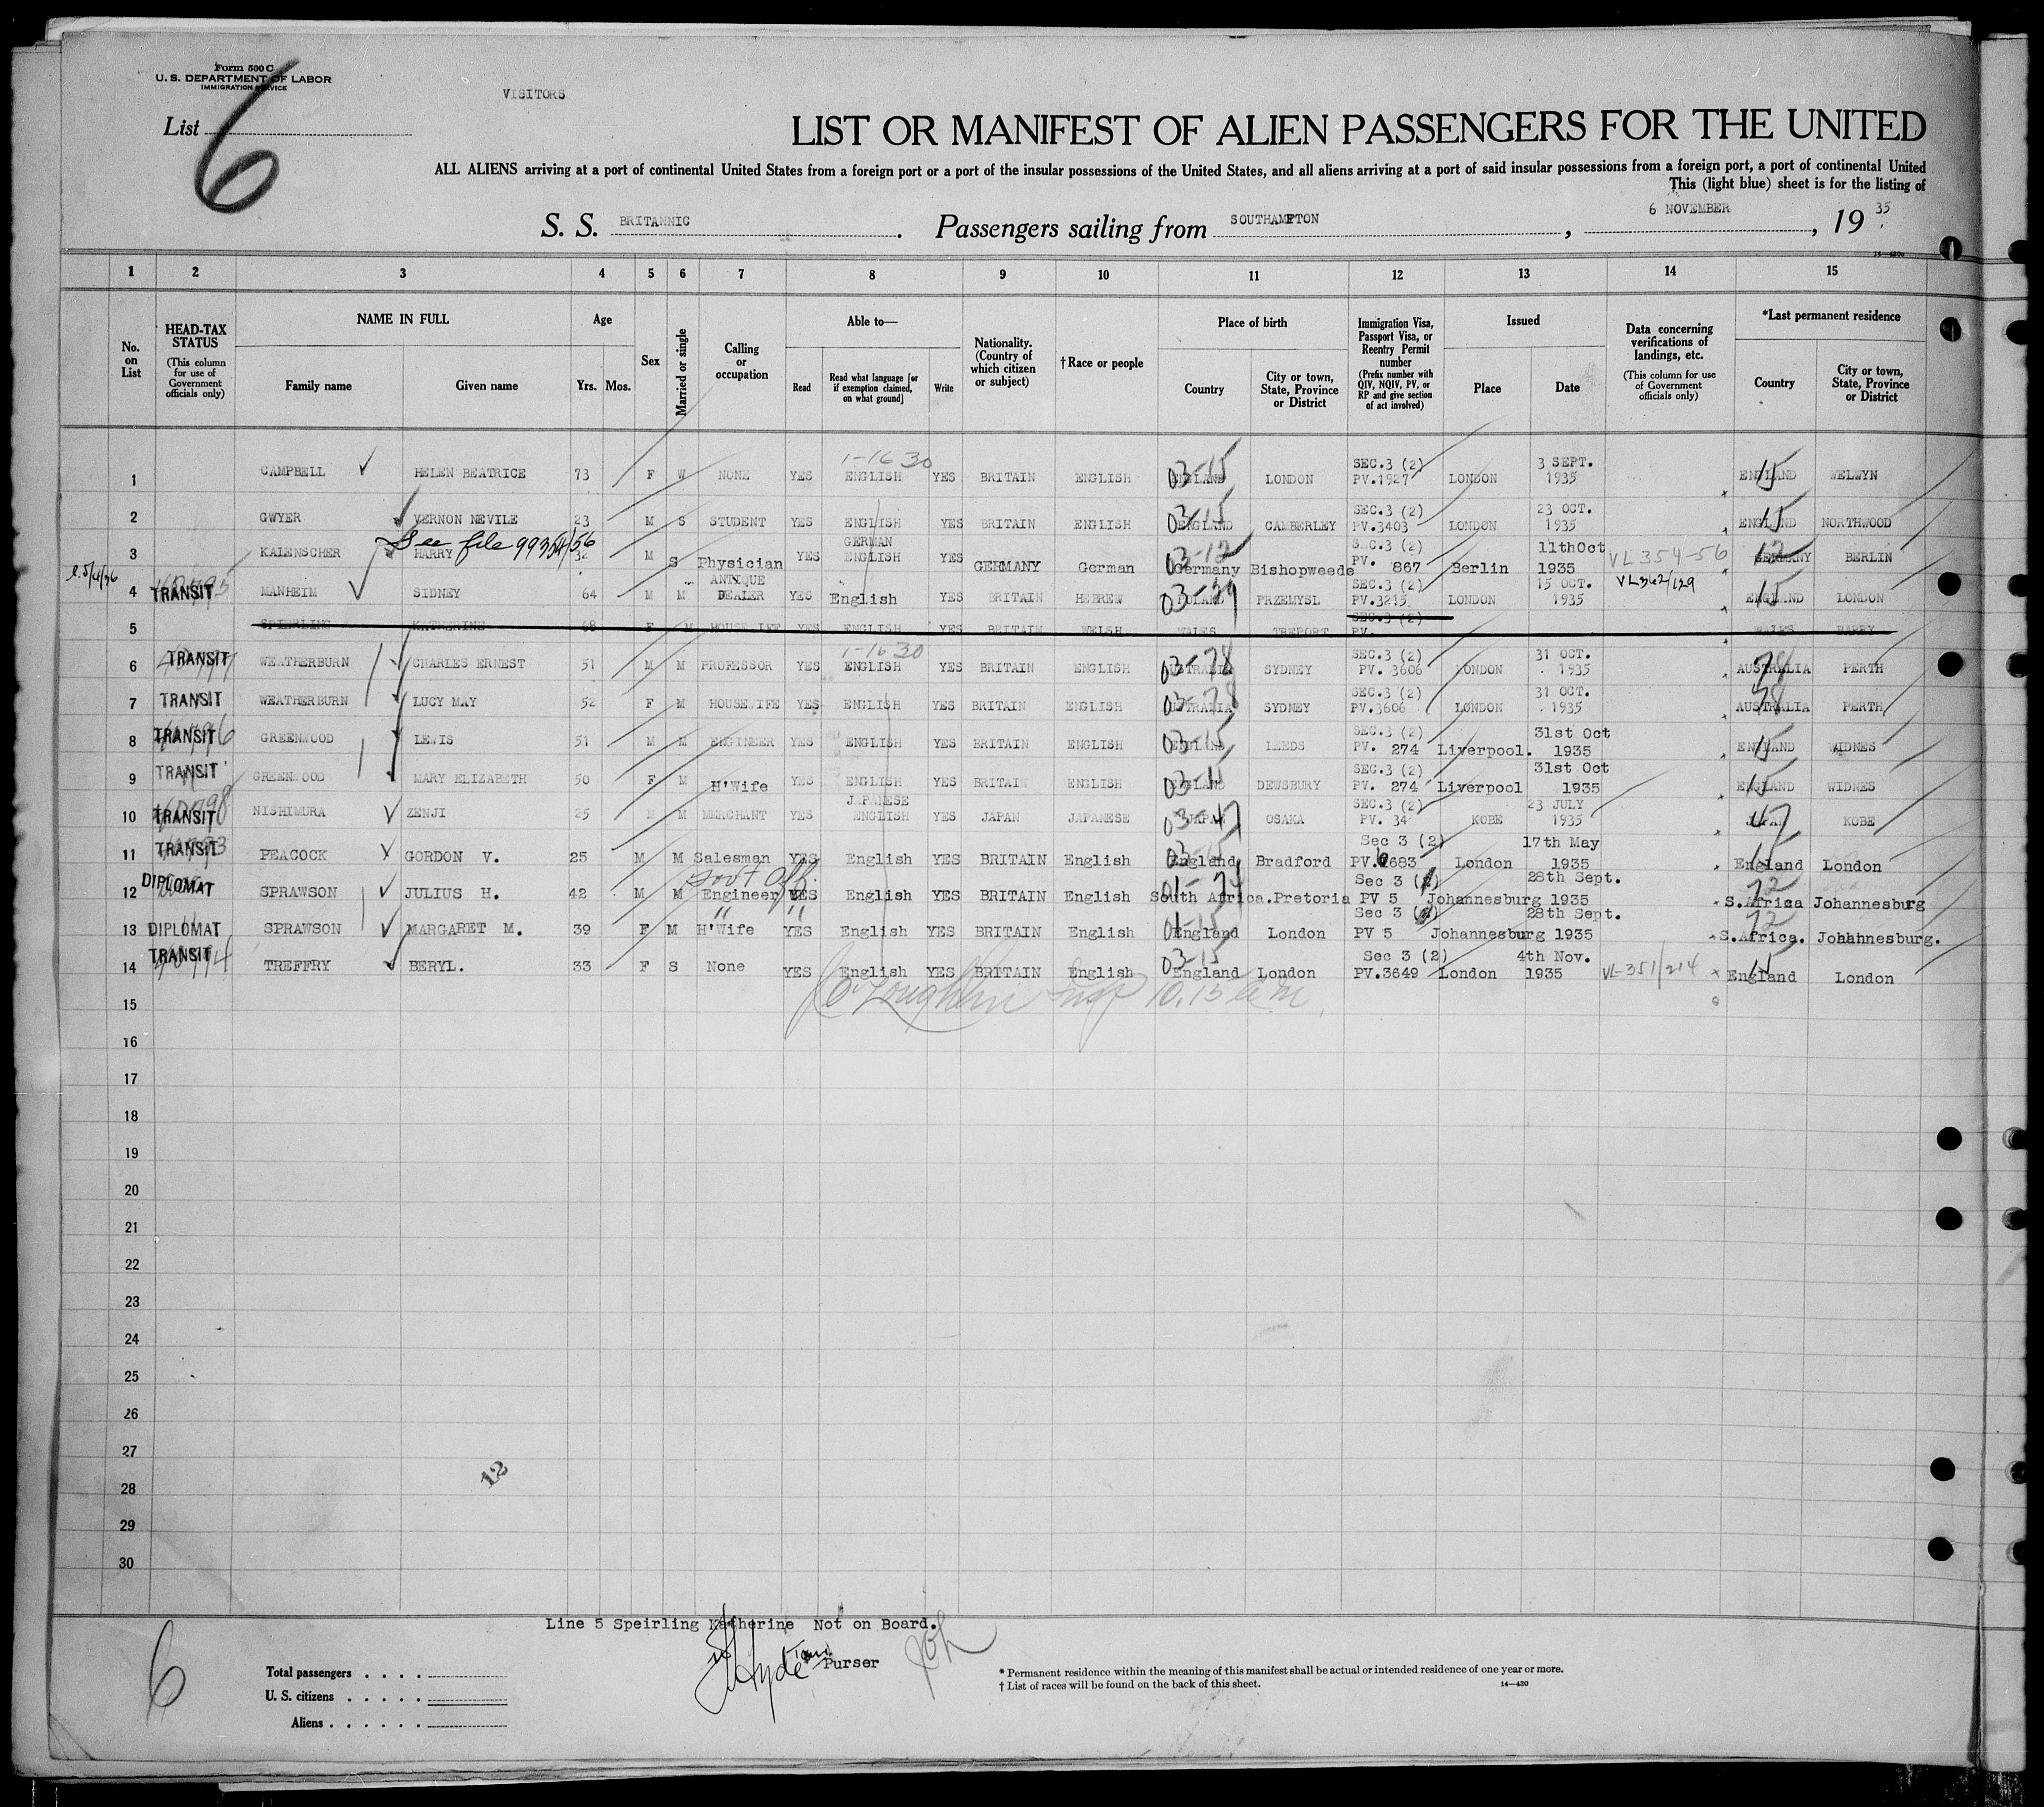 Form 500 C
U. S. DEPARTMENT OF LABOR
IMMIGRATION SERVICE
VISITORS
List 6
LIST OR MANIFEST OF ALIEN PASSENGERS FOR THE UNITED
ALL ALIENS arriving at a port of continental United States from a foreign port or a port of the insular possessions of the United States, and all aliens arriving at a port of said insular possessions from a foreign port, a port of continental United
This (light blue) sheet is for the listing of
S. S. BRITANNIC. Passengers sailing from SOUTHAMPTON, 6 NOVEMBER, 19 35
14—430a
1 2 3 4 5 6 7 8 9 10 11 12 13 14 15
No. on List
HEAD-TAX STATUS (This column for use of Government officials only)
NAME IN FULL Family name Given name
Age Yrs. Mos.
Sex
Married or single
Calling or occupation
Able to— Read Read what language [or if exemption claimed, on what ground] Write
Nationality. (Country of which citizen or subject)
†Race or people
Place of birth Country City or town, State, Province or District
Immigration Visa, Passport Visa, or Reentry Permit number (Prefix number with QIV, NQIV, PV, or RP and give section of act involved)
Issued Place Date
Data concerning verifications of landings, etc. (This column for use of Government officials only)
*Last permanent residence Country City or town, State, Province or District
1 CAMPBELL HELEN BEATRICE 73 F W NONE YES 1-16 30 ENGLISH YES BRITAIN ENGLISH 03-15 ENGLAND LONDON SEC.3 (2) PV.1927 LONDON 3 SEPT. 1935 15 ENGLAND WELWYN
2 GWYER VERNON NEVILE 23 M S STUDENT YES ENGLISH YES BRITAIN ENGLISH 03-15 ENGLAND CAMBERLEY SEC.3 (2) PV.3403 LONDON 23 OCT. 1935 15 ENGLAND NORTHWOOD
See file 99354/56
3 KALENSCHER HARRY 32 M S Physician YES GERMAN ENGLISH YES GERMANY German 03-12 Germany Bishopweede SEC.3 (2) PV. 867 Berlin 11thOct 1935 VL 354-56 12 GERMANY BERLIN
4 TRANSIT MANHEIM SIDNEY 64 M M ANTIQUE DEALER YES English YES BRITAIN HEBREW 03-29 POLAND PRZEMYSL SEC.3 (2) PV.3215 LONDON 15 OCT. 1935 VL362/129 15 ENGLAND LONDON
5 SPIERLING KATHERINE 68 F M HOUSEWIFE YES ENGLISH YES BRITAIN WELSH WALES TREPORT SEC.3 (2) PV. WALES BARRY
6 TRANSIT WEATHERBURN CHARLES ERNEST 51 M M PROFESSOR YES 1-16 30 ENGLISH YES BRITAIN ENGLISH 03-78 AUSTRALIA SYDNEY SEC.3 (2) PV. 3606 LONDON 31 OCT. 1935 78 AUSTRALIA PERTH
7 TRANSIT WEATHERBURN LUCY MAY 52 F M HOUSEWIFE YES ENGLISH YES BRITAIN ENGLISH 03-78 AUSTRALIA SYDNEY SEC.3 (2) PV.3606 LONDON 31 OCT. 1935 78 AUSTRALIA PERTH
8 TRANSIT GREENWOOD LEWIS 51 M M ENGINEER YES ENGLISH YES BRITAIN ENGLISH 03-15 ENGLAND LEEDS SEC.3 (2) PV. 274 Liverpool. 31st Oct 1935 15 ENGLAND WIDNES
9 TRANSIT GREENWOOD MARY ELIZABETH 50 F M H'Wife YES ENGLISH YES BRITAIN ENGLISH 03-15 ENGLAND DEWSBURY SEC.3 (2) PV. 274 Liverpool 31st Oct 1935 15 ENGLAND WIDNES
10 TRANSIT NISHIMURA ZENJI 25 M M MERCHANT YES JAPANESE ENGLISH YES JAPAN JAPANESE 03-47 JAPAN OSAKA SEC.3 (2) PV. 34 KOBE 23 JULY 1935 47 JAPAN KOBE
11 TRANSIT PEACOCK GORDON V. 25 M M Salesman YES English YES BRITAIN English 03-15 England Bradford Sec 3 (2) PV.6683 London 17th May 1935 15 England London
12 DIPLOMAT SPRAWSON JULIUS H. 42 M M Govt Off. Engineer YES English YES BRITAIN English 01-74 South Africa.Pretoria Sec 3 (1) PV 5 Johannesburg 28th Sept. 1935 72 S.Africa Johannesburg
13 DIPLOMAT SPRAWSON MARGARET M. 39 F M " " H'Wife YES English YES BRITAIN English 01-15 England London Sec 3 PV 5 Johannesburg 28th Sept. 1935 72 S.Africa. Johahnesburg.
14 TRANSIT TREFFRY BERYL. 33 F S None YES English YES BRITAIN English 03-15 England London Sec 3 (2) PV.3649 London 4th Nov. 1935 VL-351/214 15 England London
15 Insp 10.15 a.m.
16
17
18
19
20
21
22
23
24
25
26
27
28
29
30
12
Line 5 Speirling Katherine Not on Board.
Hyde Purser
6
Total passengers . . . .
U. S. citizens . . . . .
Aliens . . . . . .
* Permanent residence within the meaning of this manifest shall be actual or intended residence of one year or more.
† List of races will be found on the back of this sheet.
14—430